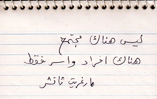 ليس هناك مجتمع
هناك افراد واسر فقط
مارغريت تاتشر